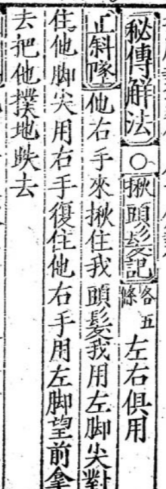 秘傳解法○揪頭髮記各條五左右俱用
斜墜他右手來揪住我頭髮我用左脚尖對
住他脚尖用右手復住他右手用左脚望前拿
去把他撲地跌去